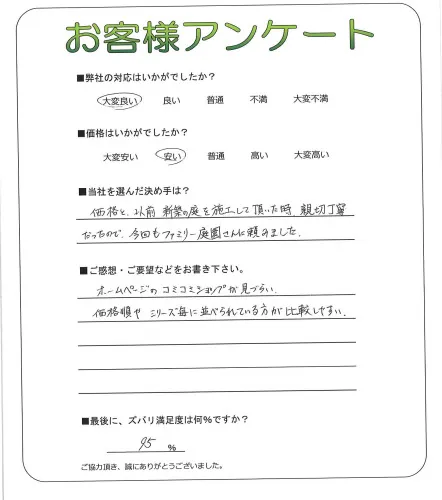 お客様アンケート
■弊社の対応はいかがでしたか？
大変良い 良い 普通 不満 大変不満
■価格はいかがでしたか？
大変安い 安い 普通 高い 大変高い
■当社を選んだ決め手は？
価格と、以前 新築の庭を施工して頂いた時、親切丁寧
だったので、今回もファミリー庭園さんに頼みました。
■ご感想・ご要望などをお書き下さい。
ホームページの コミコミショップが見づらい。
価格順や シリーズ毎に並べられている方が比較しやすい。
■最後に、ズバリ満足度は何％ですか？
95 ％
ご協力頂き、誠にありがとうございました。